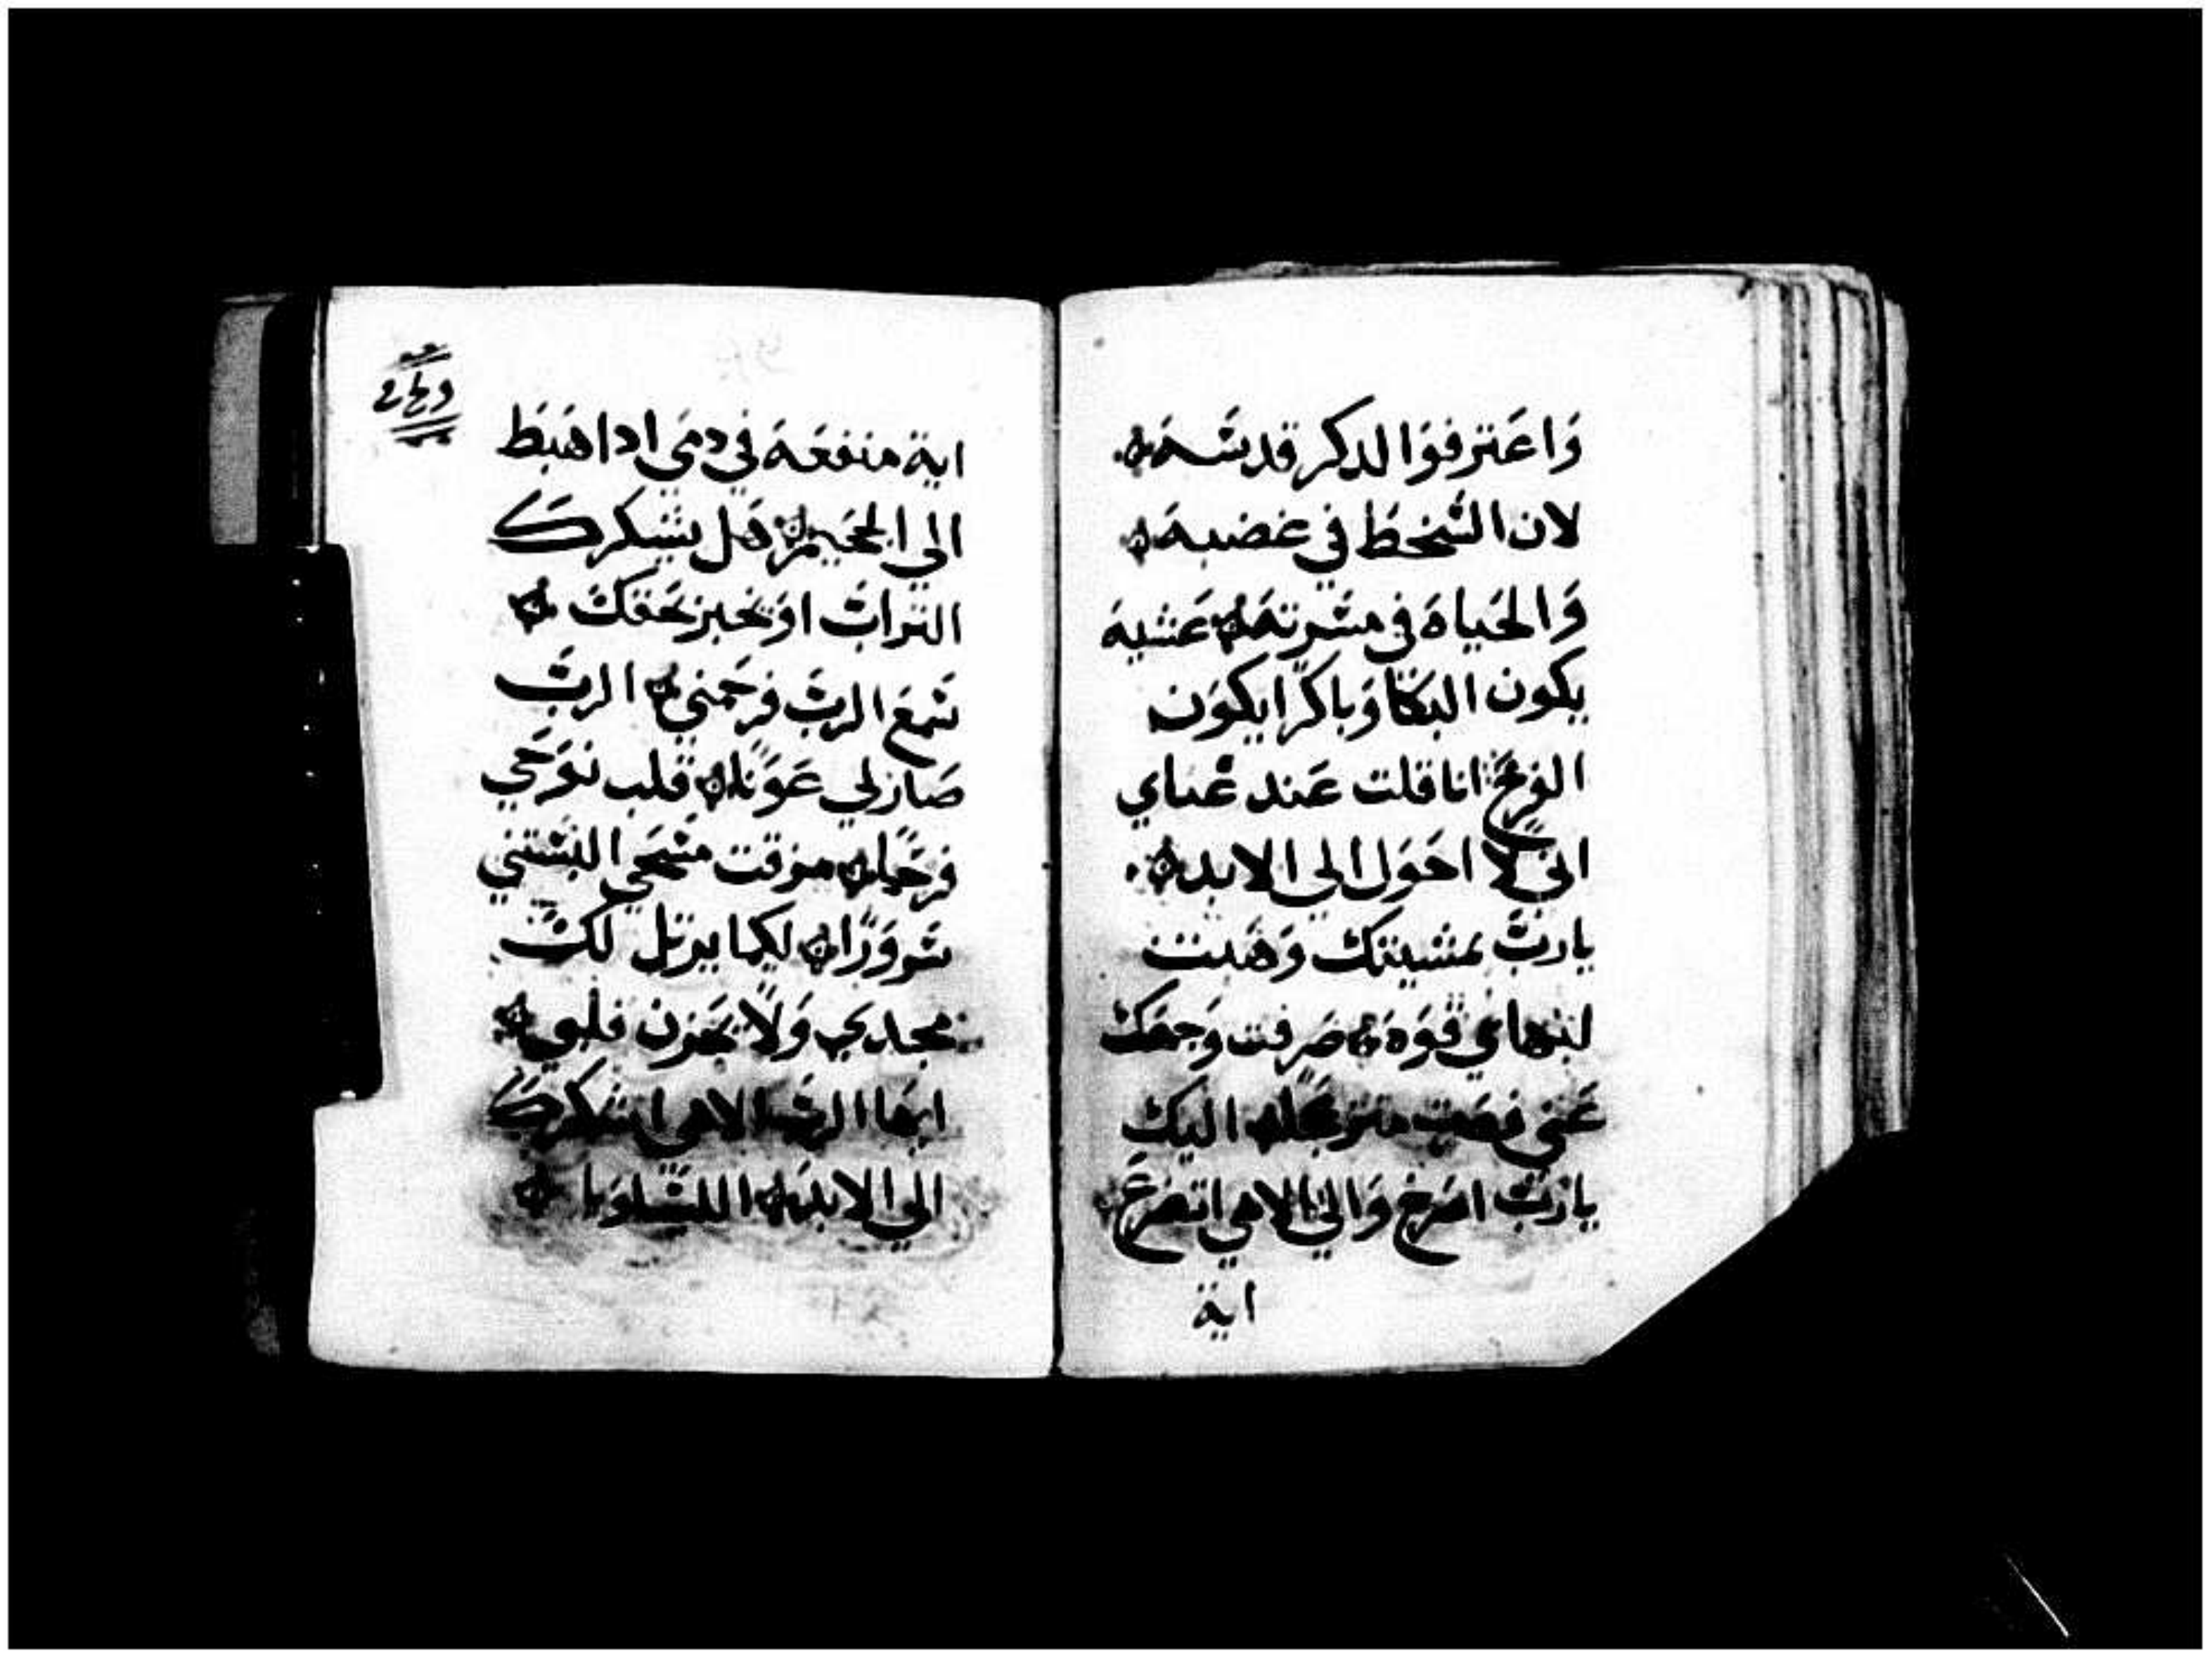 وَاعَترفوَا لدكر قدسَه
لان السَّخطَ في غضبهَ
وَالحَياةَ في مسَرتهَ عَشيهَ
يكون البكَا وَباكرًا يكوَن
الفرحَ انا قلت عَند غناي
اني لا احَوَل الي الابد
يا ربَّ بمشيتك وَهَبت
لبهَاي قوَهَ صَرفت وَجهَك
عَني فصَرت متوَجلا اليك
يا ربَّ اصَرخ وَالي الاهي اتضرَع
اية
اية منفعَهَ في دمَي ادا هبَطَ
الي الجحَيم هَل يشكرك
الترابَ اوَ يخبر بحَقكَ
سَمعَ الربَّ فرحَمني الربَّ
صَار لي عَوَنا قلب نوَحَي
فرحًا مزقت مسَحَي البسَتني
سَروَرًا لكيما يرتل لكَ
مجدي وَلا يحَزن قلبي
ايهَا الربَّ الاهي اشكرك
الي الابد الليَلوَيا